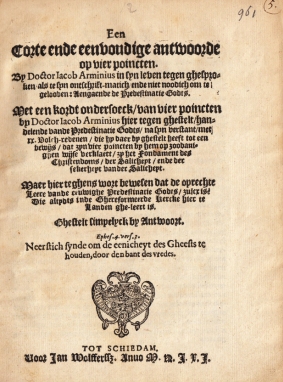 2
961
5.
Een
Corte ende eenvoudige antwoorde
op vier poincten.
By Doctor Iacob Arminius in syn leven tegen ghespro-
ken als te syn ontschrift manich ende niet noodich om te
gelooven: Aengaende de Predestinatie Godts,
Met een kordt ondersoeck/van vier poincten
by Doctor Iacob Arminius hier tegen ghestelt/han-
delende vande Predestinatie Godts/ na syn verstant/met
xx. Volch-redenen / die hy daer by ghestelt heeft tot een
bewijs / dat zyn vier poincten by hem op zoodani-
ghen wijse verklaert / zy het Fondament des
Christendoms / der Salicheyt / ende der
sekerheyt vander Salicheyt.
Maer hier teghens wort bewesen dat de oprechte
Leere vande eeuwighe Predestinatie Godts / zulcx is:
Die altydts inde Ghereformeerde Kercke hier te
Landen ghe-leert is.
Ghestelt simpelyck by Antwoort.
Ephes. 4. vers. 3.
Neerstich synde om de eenicheyt des Gheests te
houden, door den bant des vredes.
TOT SCHIEDAM,
Voor Jan Wolffersz. Anno